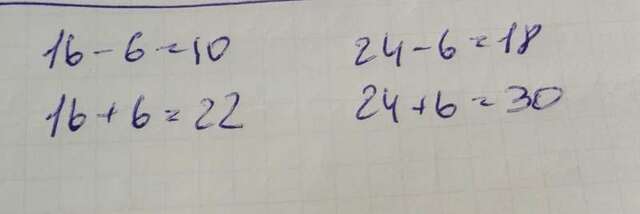 16 - 6 = 10 24 - 6 = 18
16 + 6 = 22 24 + 6 = 30